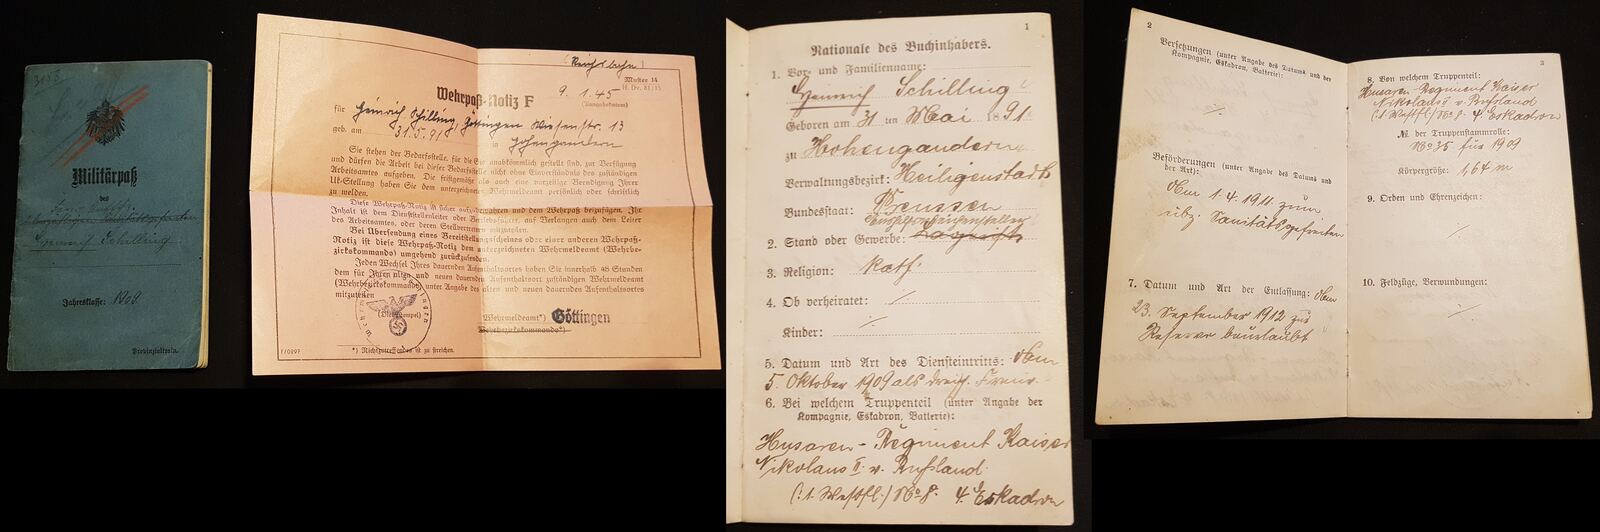 3155
Militärpaß
des
Heinrich Schilling
Jahresklasse: 1909
Provinzialtrain.
(Reichsbahn)
Muster 14
H. Dv. 81/15
Wehrpaß-Notiz F
9. 1. 45
(Ausgabedatum)
für Heinrich Schilling, Göttingen Wiesenstr. 13
geb. am 31.5.91 in Hohengandern
Sie stehen der Bedarfsstelle, für die Sie unabkömmlich gestellt sind, zur Verfügung
und dürfen die Arbeit bei dieser Bedarfsstelle nicht ohne Einverständnis des zuständigen
Arbeitsamtes aufgeben. Die fristgemäße als auch eine vorzeitige Beendigung Ihrer
Uk-Stellung haben Sie dem unterzeichneten Wehrmeldeamt persönlich oder schriftlich
zu melden.
Diese Wehrpaß-Notiz ist sicher aufzubewahren und dem Wehrpaß beizufügen. Ihr
Inhalt ist dem Dienststellenleiter oder Betriebsführer, auf Verlangen auch dem Leiter
des Arbeitsamtes, oder deren Stellvertretern mitzuteilen.
Bei Übersendung eines Bereitstellungsscheines oder einer anderen Wehrpaß-
Notiz ist diese Wehrpaß-Notiz dem unterzeichneten Wehrmeldeamt (Wehrbe-
zirkskommando) umgehend zurückzusenden.
Jeden Wechsel Ihres dauernden Aufenthaltsortes haben Sie innerhalb 48 Stunden
dem für Ihren alten und neuen dauernden Aufenthaltsort zuständigen Wehrmeldeamt
(Wehrbezirkskommando) unter Angabe des alten und neuen dauernden Aufenthaltsortes
mitzuteilen
(Dienststempel)
Wehrmeldeamt*) Göttingen
Wehrbezirkskommando*)
F/0297
*) Nichtzutreffendes ist zu streichen.
1
Nationale des Buchinhabers.
1. Vor- und Familienname:
Heinrich Schilling
Geboren am 31 ten Mai 1891
zu Hohengandern
Verwaltungsbezirk: Heiligenstadt
Bundesstaat: Preussen
2. Stand oder Gewerbe:
3. Religion: kath.
4. Ob verheiratet: /
Kinder: ·/·
5. Datum und Art des Diensteintritts: Am
5. Oktober 1909 als dreij. Freiw.
6. Bei welchem Truppenteil (unter Angabe der
Kompagnie, Eskadron, Batterie):
Husaren-Regiment Kaiser
Nikolaus II. v. Rußland
(:1. Westfl.) No 8. 4. Eskadron
2
Versetzungen (unter Angabe des Datums und der
Kompagnie, Eskadron, Batterie):
·/·
Beförderungen (unter Angabe des Datums und
der Art):
Am 1.4.1911 zum
übz. Sanitätsgefreiten
7. Datum und Art der Entlassung: Am
23. September 1912 zur
Reserve beurlaubt
3
8. Von welchem Truppenteil:
Husaren-Regiment Kaiser
Nikolaus II v. Rußland
(:1. Westfl.) No 8. 4. Eskadron
№ der Truppenstammrolle:
No 35 für 1909
Körpergröße: 1,64 m
9. Orden und Ehrenzeichen:
·/·
10. Feldzüge, Verwundungen:
·/·